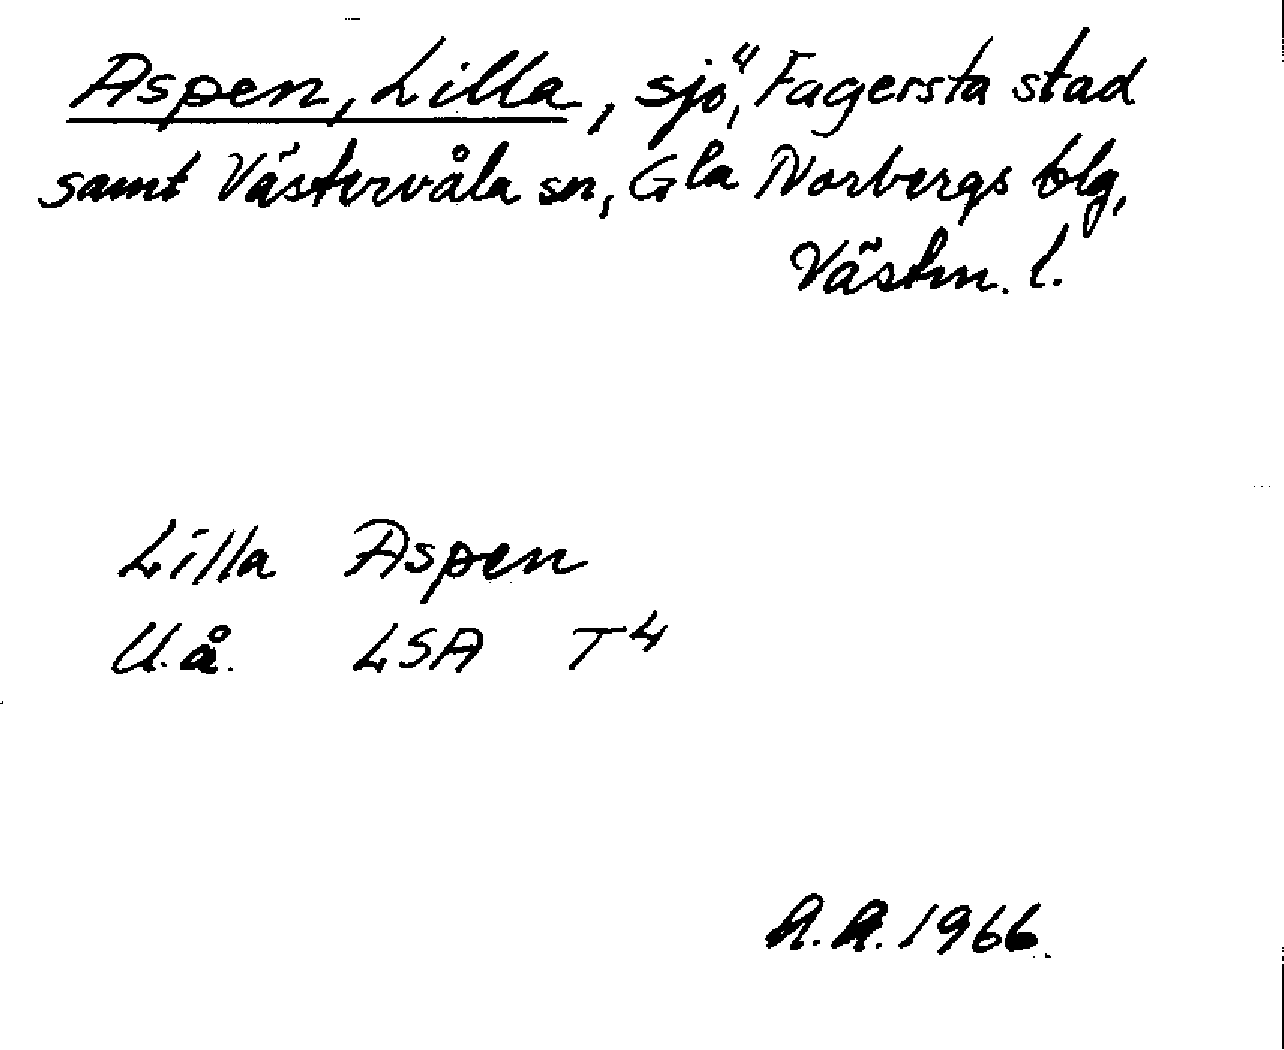 Aspen, Lilla, sjö, Fagersta stad
samt Västervåla sn, Gla Norbergs blg,
Västm. l.
Lilla Aspen
U.å. LSA T4
A.A. 1966.